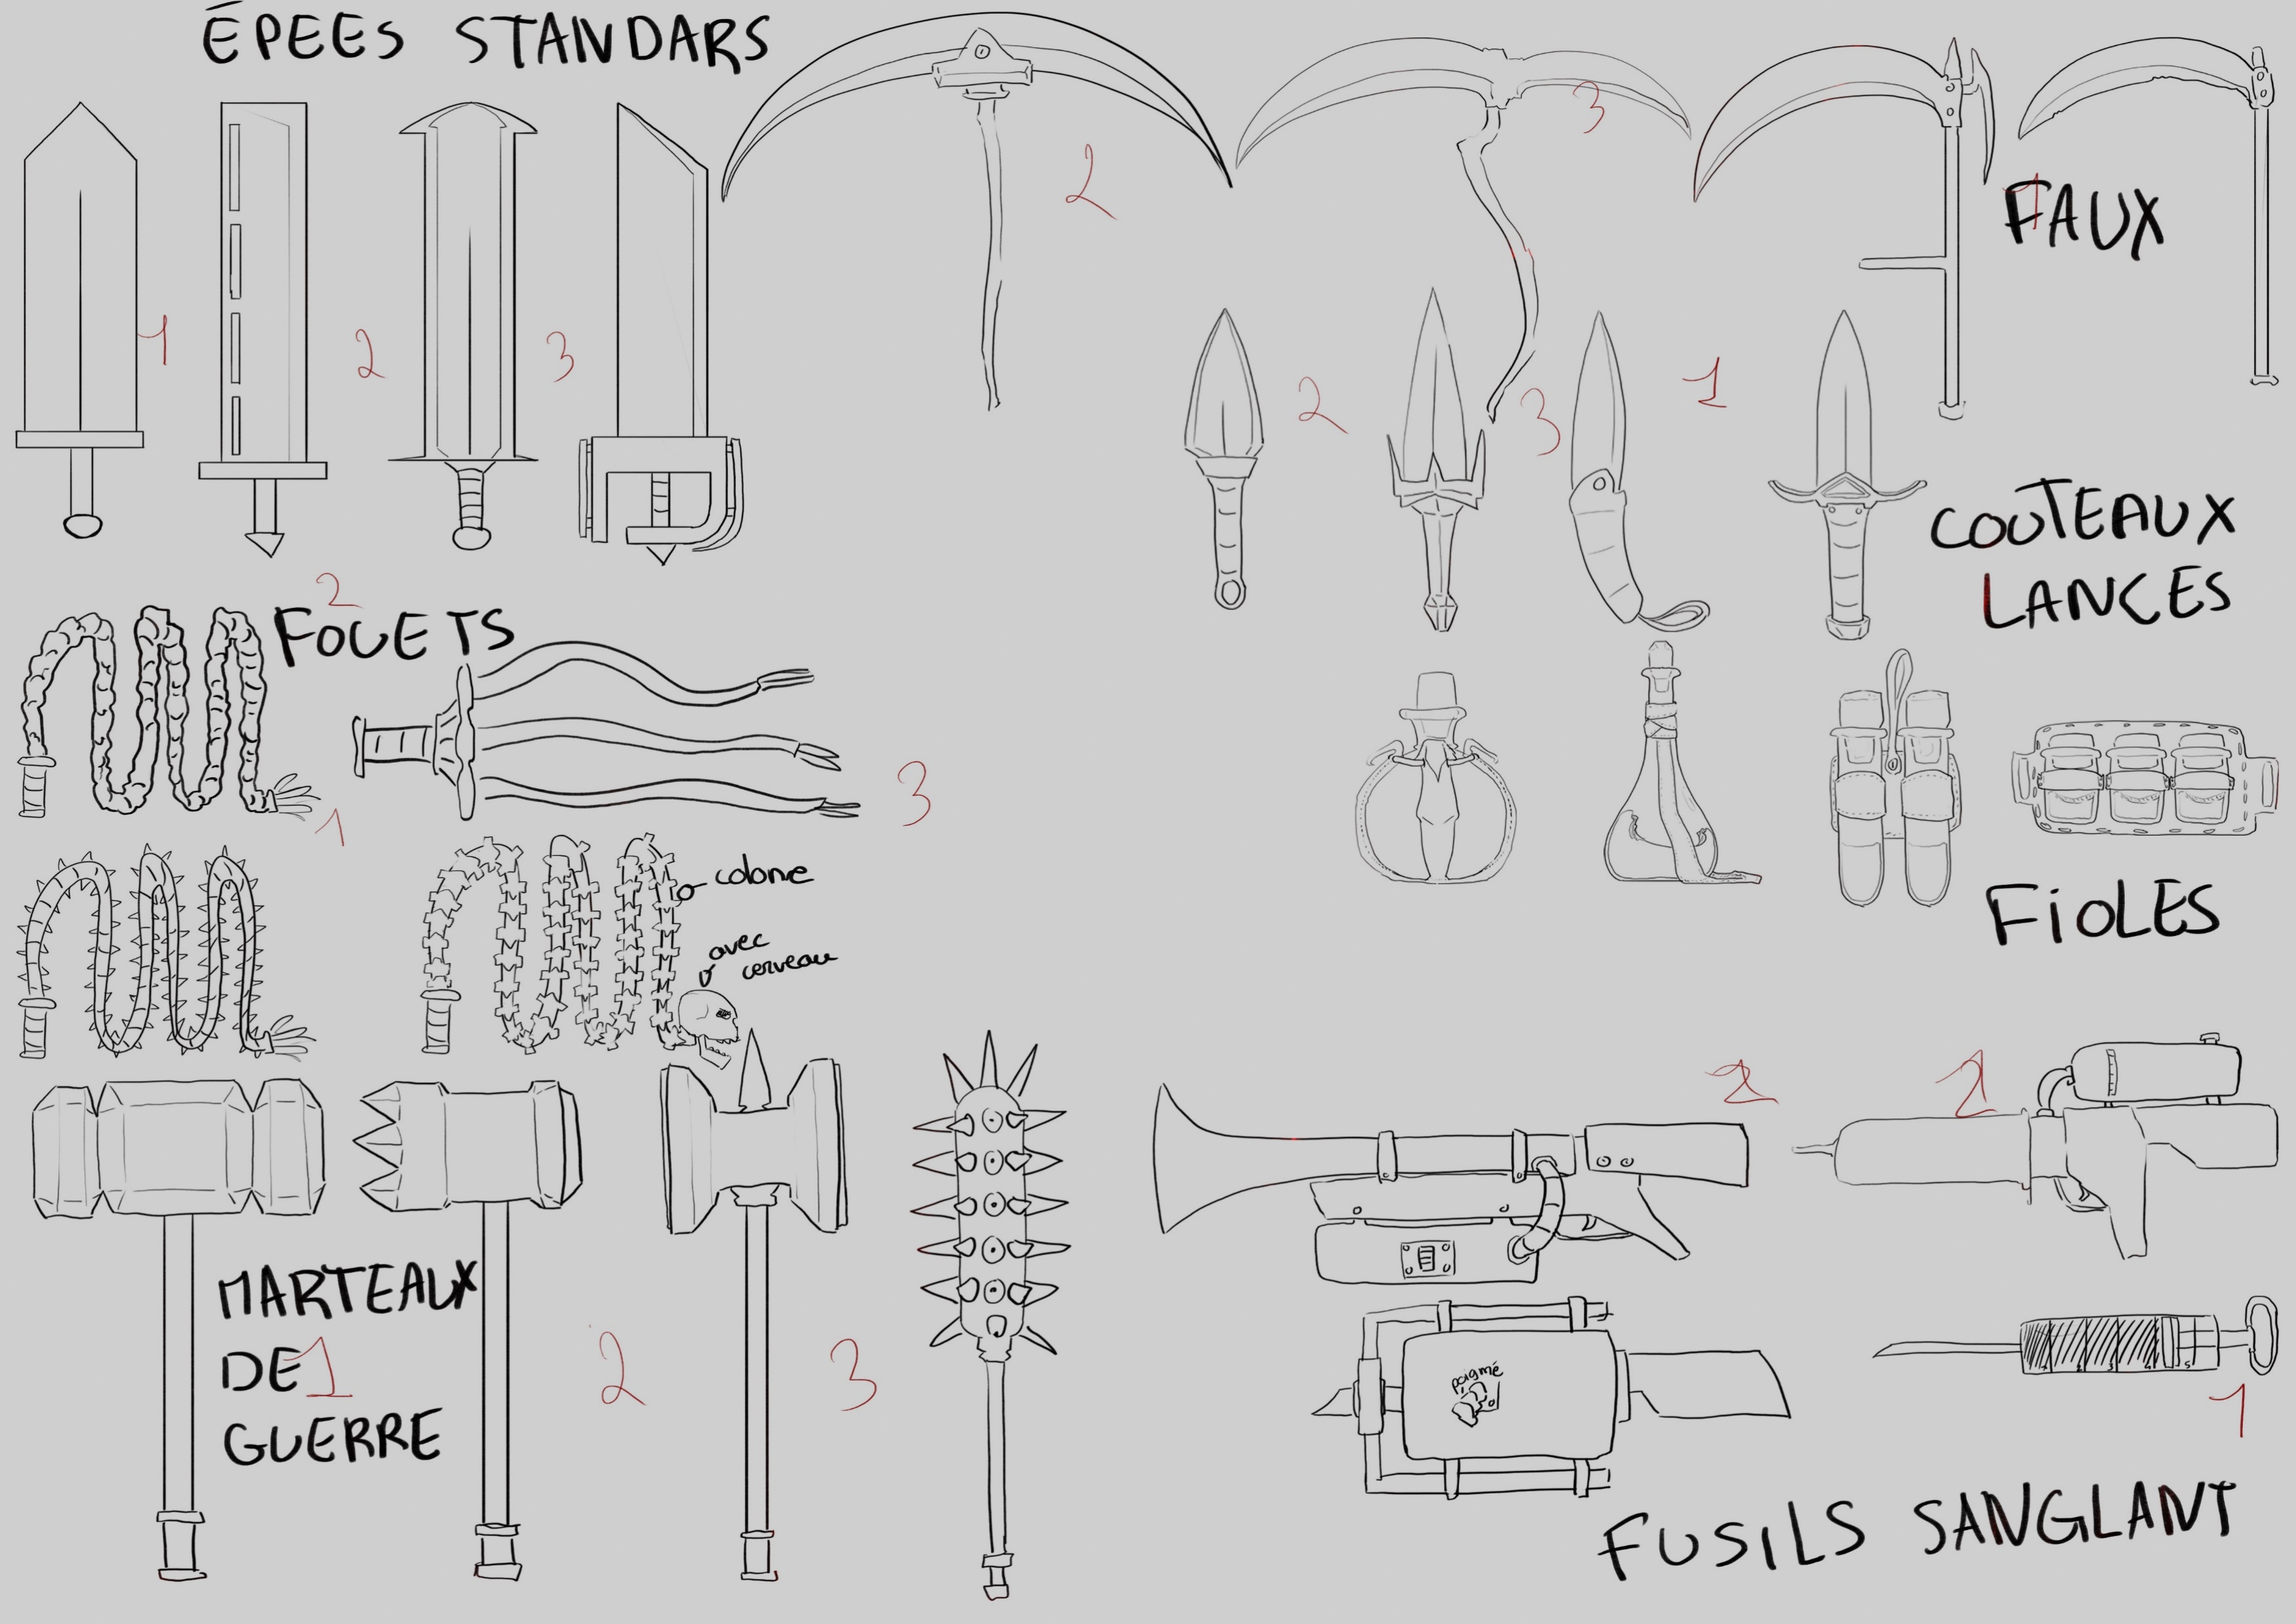 ÉPEES STANDARS
2
3
1
FAUX
1
2
3
2
3
1
COUTEAUX
LANCES
2
FOUETS
3
1
colone
avec
cerveau
FiOLES
2
2
MARTEAUX
DE 1
GUERRE
2
3
poigné
1
FUSiLS SANGLANT